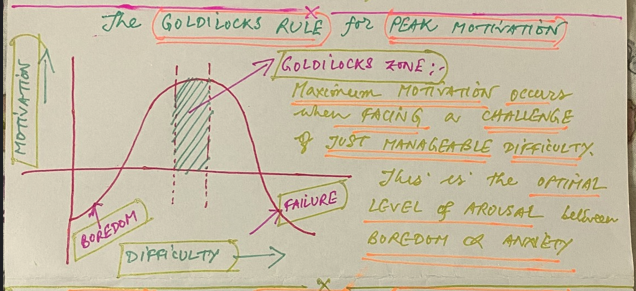 The GOLDILOCKS RULE for PEAK MOTIVATION
MOTIVATION
GOLDILOCKS ZONE:-
Maximum MOTIVATION occurs
when FACING a CHALLENGE
of JUST MANAGEABLE DIFFICULTY.
This is the OPTIMAL
LEVEL of AROUSAL between
BOREDOM or ANXIETY
BOREDOM
FAILURE
DIFFICULTY